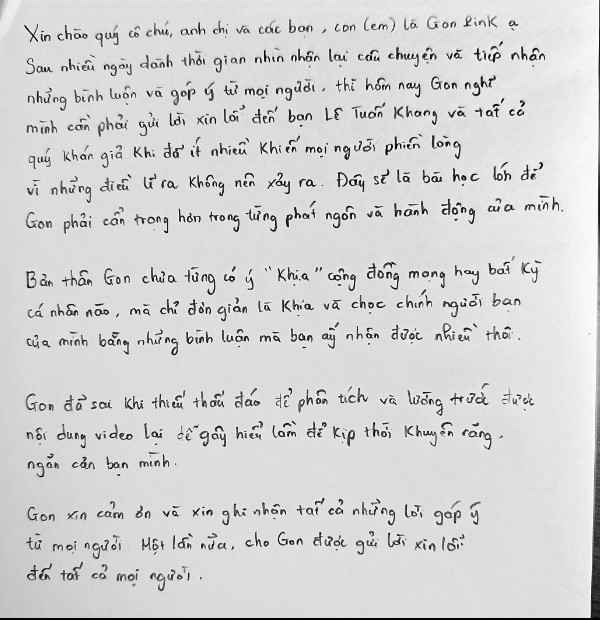 Xin chào quý cô chú, anh chị và các bạn, con (em) là Gon Pink ạ.
Sau nhiều ngày dành thời gian nhìn nhận lại câu chuyện và tiếp nhận
những bình luận và góp ý từ mọi người, thì hôm nay Gon nghĩ
mình cần phải gửi lời xin lỗi đến bạn Lê Tuấn Khang và tất cả
quý khán giả khi đã ít nhiều khiến mọi người phiền lòng
vì những điều lẽ ra không nên xảy ra. Đây sẽ là bài học lớn để
Gon phải cẩn trọng hơn trong từng phát ngôn và hành động của mình.
Bản thân Gon chưa từng có ý "khịa" cộng đồng mạng hay bất kỳ
cá nhân nào, mà chỉ đơn giản là khịa và chọc chính người bạn
của mình bằng những bình luận mà bạn ấy nhận được nhiều thôi.
Gon đã sai khi thiếu thấu đáo để phân tích và lường trước được
nội dung video lại dễ gây hiểu lầm để kịp thời khuyên răng,
ngăn cản bạn mình.
Gon xin cảm ơn và xin ghi nhận tất cả những lời góp ý
từ mọi người. Một lần nữa, cho Gon được gửi lời xin lỗi
đến tất cả mọi người.